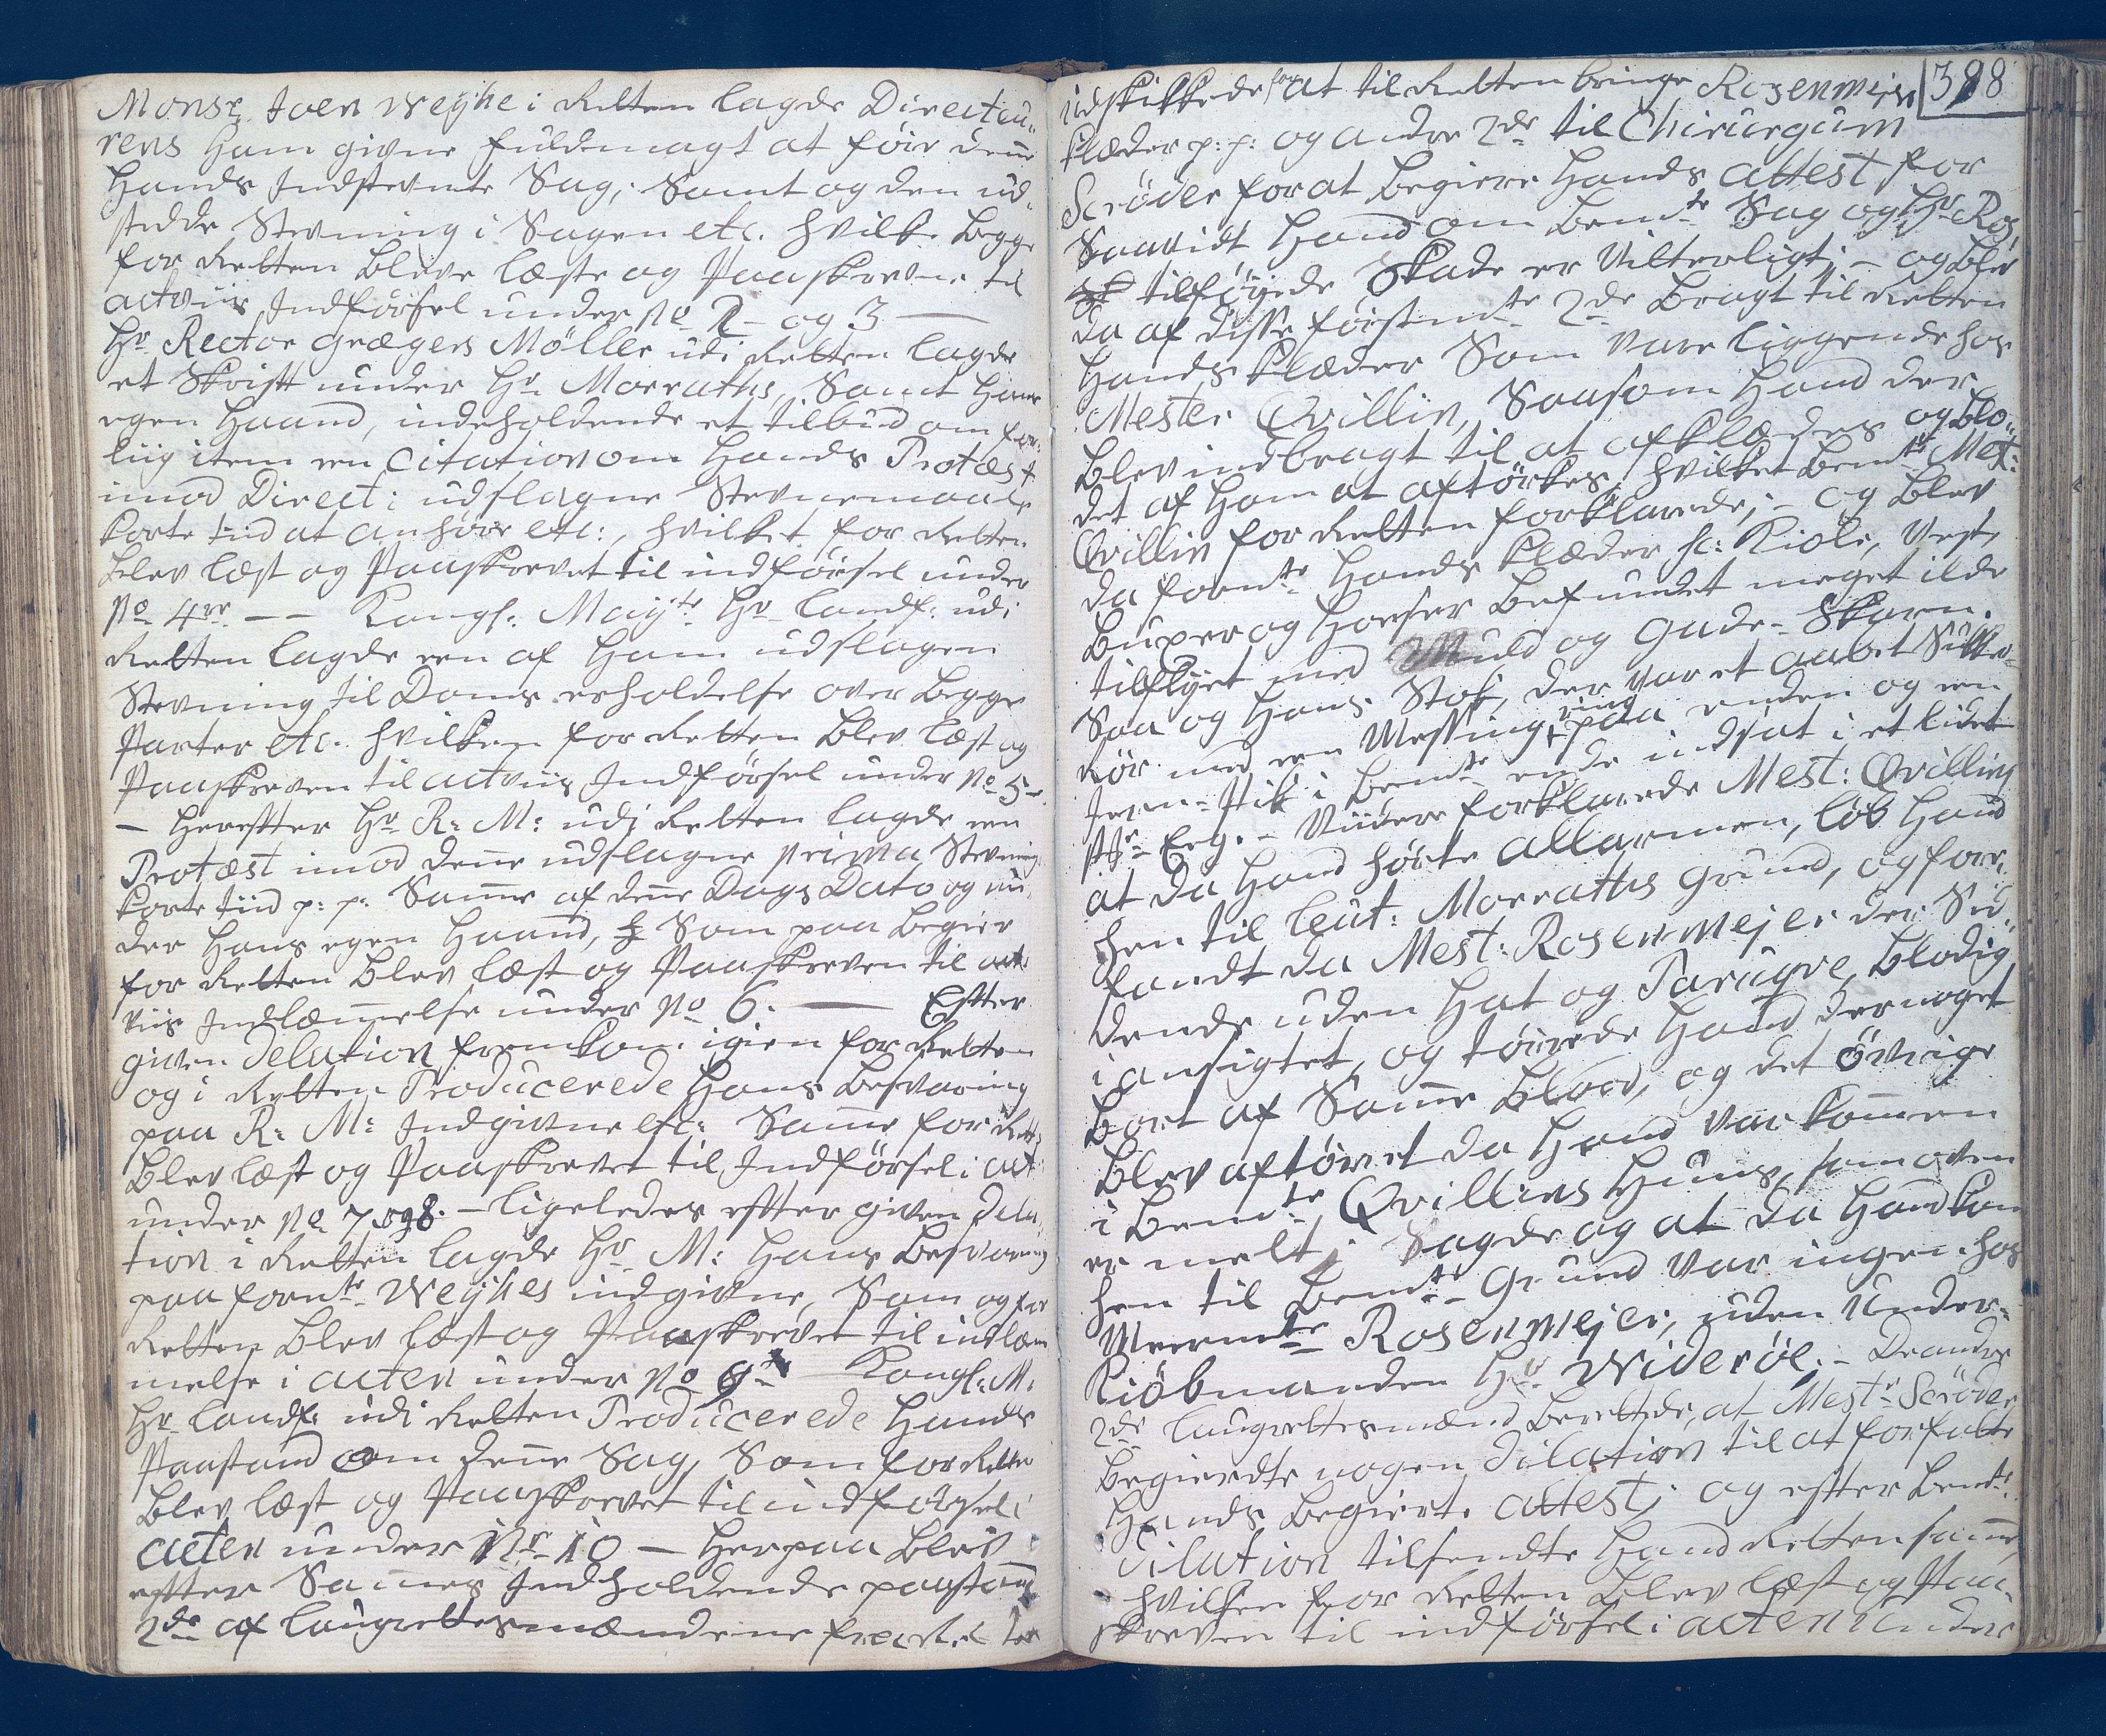 Monsr. Joen Weyhe i Retten lagde Directeu-
rens Ham givne fuldmagt at føre denne
Hands Indstevnte Sag; Samt og den ud-
stedde Stevning i Sagen etc. hvilke begge
for Retten bleve læste og Paaskrevne til
actviis Indførsel under No 2 og 3 —
Hr Rector Grægers Møller udi Retten lagde
et Skrift under Hr Morraths, Samt Hans
egen Haand, indeholdende et tilbud om for-
liig item en Citation om Hands Protæst
imod Direct: udslagne Stevnemaals
korte tiid at anhøre etc:, hvilket for Retten
blev læst og Paaskrevet til indførsel under
No 4re. — — Kongl: Mayts Hr Landf: udi
Retten lagde een af Ham udslagen
Stevning til Doms erholdelse over begge
Parter etc. hvilken for Retten blev læst og
Paaskreven til actviis Indførsel under No 5
— Herefter Hr R: M: udi Retten lagde een
Protæst imod denne udslagne Stevning
korte tiid p: p: Samme af denne Dags Dato og un-
der Hans egen Haand, Som paa begier
for Retten blev læst og Paaskreven til act-
viis Indlæmmelse under No 6. — Efter
given Delation fremkom igien for Retten
og i Retten Producerede Hans besvaring
paa R: M: Indgivne etc: Samme for Rett:
blev læst og Paaskrevet til Indførsel i act:
under No 7 og 8. — ligeledes efter given Dela-
tion i Retten lagde Hr M: Hans besvaring
paa forn:te Weyhes indgivne, Som og for
Retten blev læst og Paaskrevet til indlæm-
melse i acten under No 9de Kongl: M:
Hr Landf: udi Retten Producerede Hands
Paastand om denne Sag, Som for Retten
blev læst og Paaskrevet til indførsel i
acten under Nr 10 — Herpaa blev
efter Sammes Indholdende paastand
2de af laugrettesmændene
398
udskikkede for at til Retten bringe Rosenmejers
klæder p: p: og andre 2de til Chirurgum
Scrøder for at begiere Hands attest for
Saavidt Hand om bemte Sag og Hr Ros:
tilføyede Skade er Vitterligt; — og blev
da af disse førstm:te 2de bragt til Retten
Hands klæder Som vare liggende hos
Mester Qvillin, Saasom Hand der
blev indbragt til at afklædes og blo-
det af Ham at aftørkes, hvilket bemte Mest:
Qvillin for Retten forklarede; — og blev
da forn:te Hands klæder sc: Kiole, Vest,
buxer og Hoeser befundet meget ilde
tilflyet med Muld og Gade-Skarn.
Saa og Hans Stok, der var et aabet Sukker-
rør med een Messing ring paa enden og een
Jern-Pik i bemte ende indsat i et lidet
st: Eeg. — Viidere forklarede Mest: Qvillin
at da Hand hørte allarmen, løb Hand
hen til leut: Morraths Grund, og fore-
fandt da Mest: Rosenmejer der Sid-
dende uden Hat og Paruqve, blodig
i ansigtet, og tørrede Hand der noget
bort af Samme blood, og det øvrige
blev aftørret da Hand var kommen
i bemte Qvillins Huus, som oven
er melt; Sagde og at da Hand kom
hen til bemte Grund var ingen hos
Meermte Rosenmejer, uden Under-
Kiøbmanden Hr Widerøe. — De andre
2de laugrettesmænd berettede, at Mestr Scrøder
begierdte nogen Dilation til at forfatte
Hands begierte attest; og efter bemte
Dilation tilsendte Hand Retten samme
hvilken for Retten blev læst og Paa-
skreven til indførsel i acten under